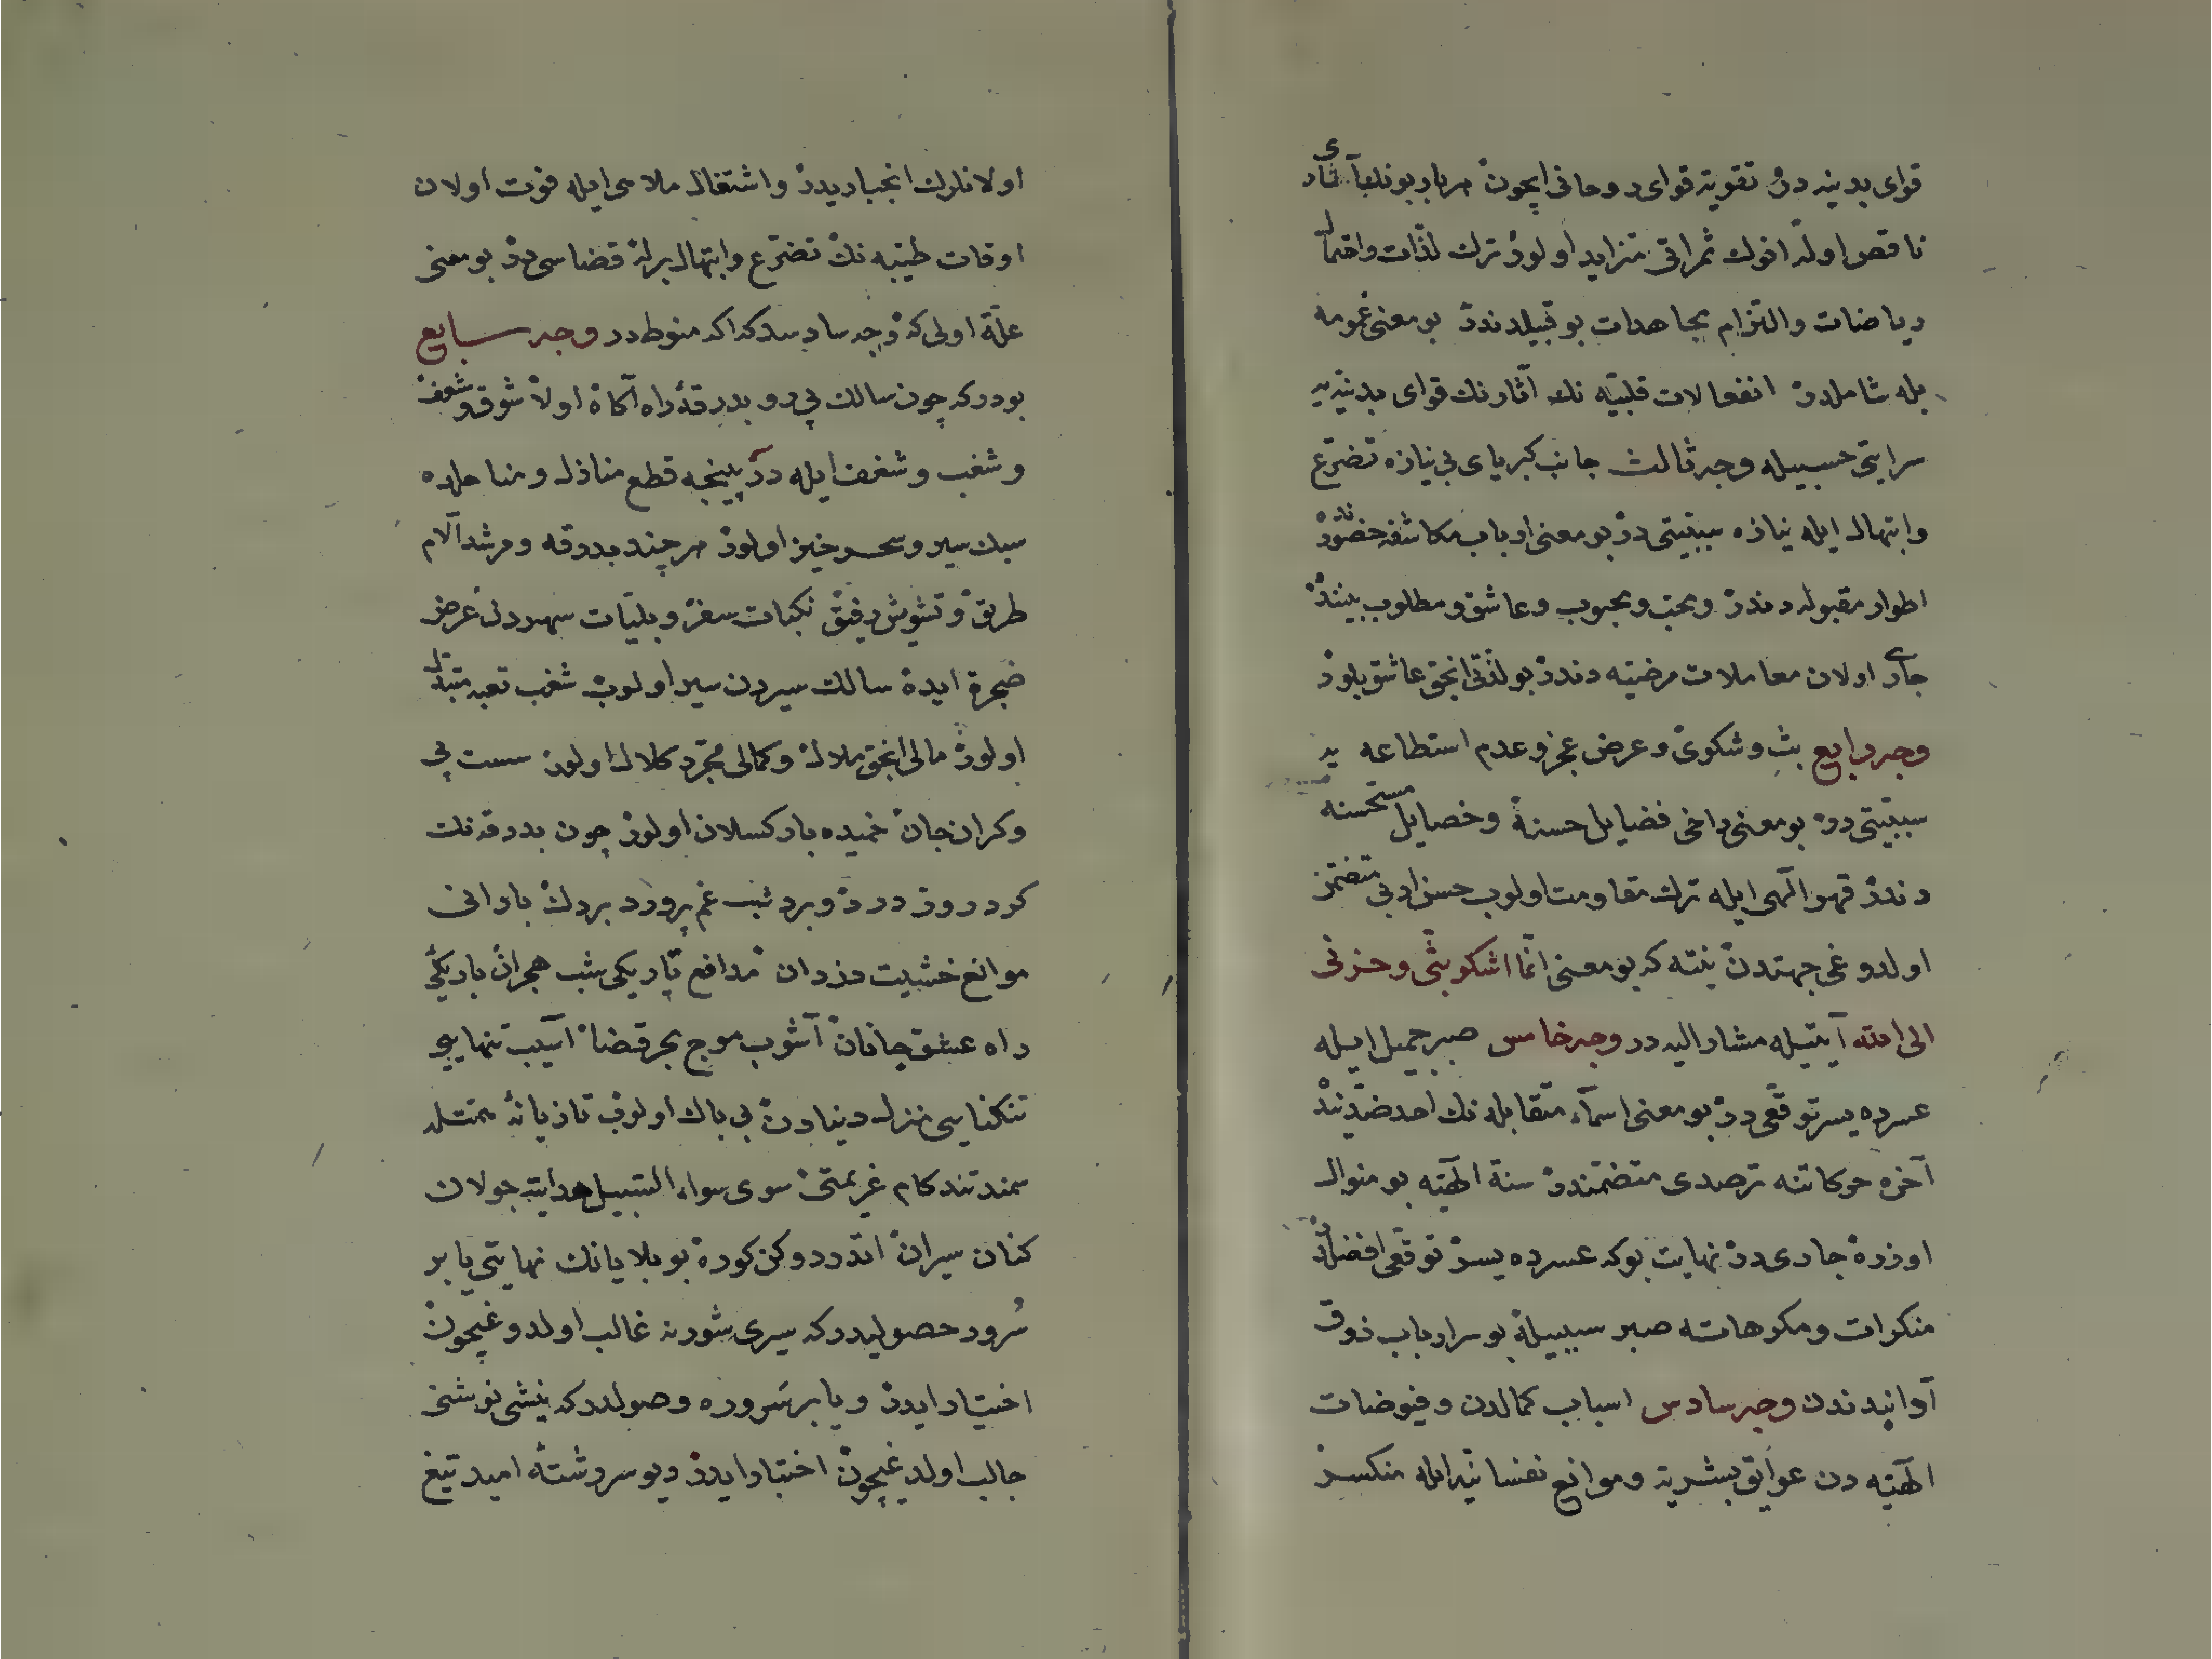 قوای بدنیه در تقویة قوای روحانی ایچون هر بار بونلرك آثاری
ناقص اولد انوك ثمراتی متزاید اولور ترك لذّات واختمال
ریاضات والتزام مجاهدات بو قبیلدندر بو معنی غمومه
بله شاملدر انفعالات قلبیّه نك آثارنك قوای بدنیّه یه
سرایتی حسبیله وجه ثالث جانب كبریای بی نیازه تضرّع
وابتهال ایله نیازه سببیتی در بو معنی ارباب مكاشفه حضورنده
اطوار مقبوله دندر ومحبّ ومحبوب وعاشق ومطلوب بیننده
جاری اولان معاملات مرضیّه دندر بو لذّتی انجق عاشق بلور
وجه رابع بثّ وشكوی وعرض عجز وعدم استطاعه یه
سببیّتی در بو معنی داخی فضایل حسنه وخصایل مستحسنه
دندر قهر الهی ایله ترك مقاومت اولوب حسن ادبی متضمّن
اولدوغی جهتدن ینه كه بو معنی انّما اشكو بثّی وحزنی
الی الله آیتیله مشار الیه در وجه خامس صبر جمیل ایله
عسرده یسر توقّعی در بو معنی اسمآء متقابله نك احد ضدّیندن
آخره حركاتنه ترصدی متضمّندر سنّة الهیّه بو منوال
اوزره جاری در نهایت بو كه عسرده یسر توقّعی افضلدر
منكرات ومكروهاته صبر سببیله بو سر ارباب ذوق
آوانیدندن وجه سادس اسباب كمالدن وفیوضات
الهیّه دن عوایق بشریه وموانع نفسانیه ایله منكسر
اولانلرك انجباریدر واشتغال ملاهی ایله فوت اولان
اوقات طیّبه نك تضرّع وابتهال برله قضاسی در بو معنی
علّة اولی كه وجه سادسدر كه اكه منوطدر وجه سابع
بودر كه چون سالك پی رو بدرقهٔ راه آكاه اولا شوق وشعف
وشغب وشغف ایله در پنجه قطع منازل ومناهلده
سبك سیر وسحر خیز اولور هر چند بدرقه ومرشد آلام
طریق وتشویش رفیق نكبات سفر وبلیّات سهردن عرض
ضجرة ایده سالك سیردن سیر اولوب شغب تعبه متبدّل
اولور مالی انجق ملال وكمالی مجرّد كلال اولور سست پی
وكران جان خمیده بار كسلان اولور چون بدرقه نك
كرد روز درد وبرد شب غم پرورد بردك بارانی
موانع خشیت دزدان مدافع تاریكی شب هجران باریكی
راه عشق جانان آشوب موج بحر قضا آسیب تنهایی
تنكنایی منزل دنیادن بی باك اولوب تازیانهٔ همّتله
سمند تند كام عزیمتی سوی سواء السّبیل هدایته جولان
كنان سیران اتدردوكن كوره بو بلایانك نهایتی یا بر
سُرور حصولیدر كه سیری شورنه غالب اولدوغیچون
اختیار ایدر ویا بر سروره وصولدر كه نیشی نوشنی
جالب اولدیغیچون اختیار ایدر دیو سررشتهٔ امید تیغ